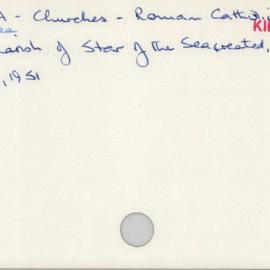 A - Churches - Roman Catholic
Kil
ea
arish of Star of the Sea created,
, 1951